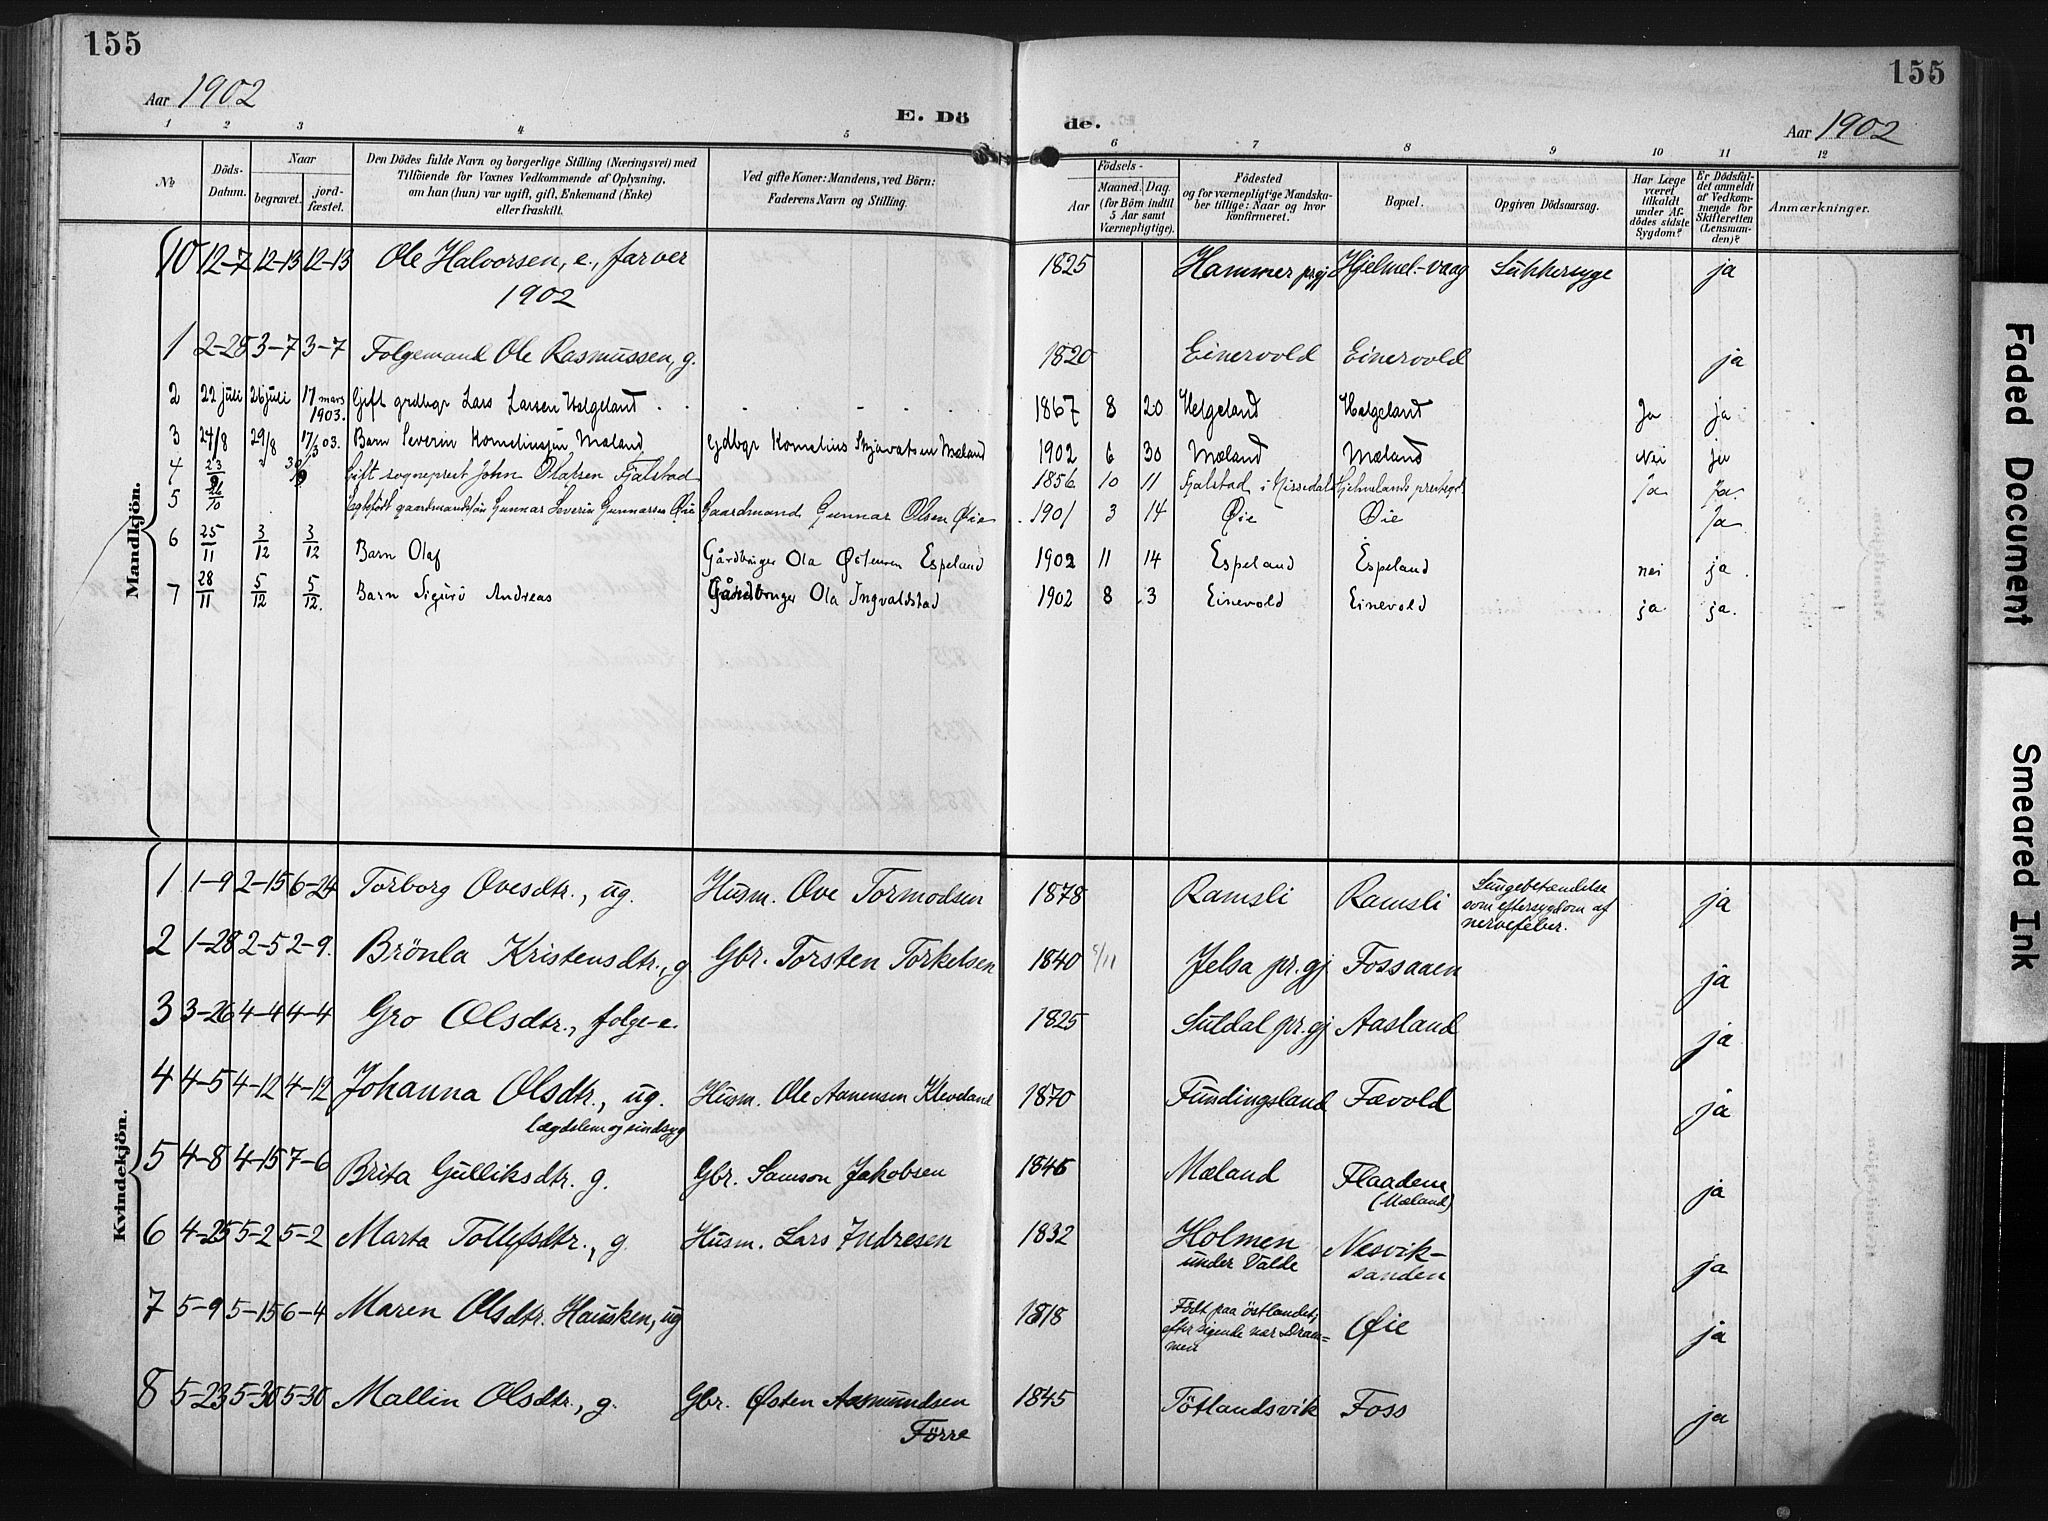 155
155
Aar 1902
E. Dö
de.
Aar 1902
1 2 3 4 5 6 7 8 9 10 11 12
No
Döds-Datum.
Naar
begravet.
jord-fæstet.
Den Dödes fulde Navn og borgerlige Stilling (Næringsvei) med
Tilföiende for Voxnes Vedkommende af Oplysning,
om han (hun) var ugift, gift, Enkemand (Enke)
eller fraskilt.
Ved gifte Koner: Mandens, ved Börn:
Faderens Navn og Stilling.
Födsels-
Aar
Maaned. Dag.
(for Börn indtil
5 Aar samt
Værnepligtige).
Födested
og for værnepligtige Mandska-
ber tillige: Naar og hvor
konfirmeret.
Bopæl.
Opgiven Dödsaarsag.
Har Læge
været
tilkaldt
under Af-
dödes sidste
Sygdom?
Er Dödsfal-
det anmeldt
af Vedkom-
mende for
Skifteretten
(Lensman-
den)?
Anmærkninger.
Mandkjön.
10 12-7 12-13 12-13 Ole Halvorsen, e., farver 1825 Hammer prgj Hjelmel-vaag Sukkersyge ja
1902
1 2-28 3-7 3-7 Folgemand Ole Rasmussen, g. 1820 Einervold Einervold ja
2 22 juli 26 juli 17 mars 1903. Gift grdbgr Lars Larsen Helgeland 1867 8 20 Helgeland Helgeland Ja ja
3 24/8 29/8 17/3 03. Barn Severin Korneliussøn Mæland Gdbgr Kornelius Mæland 1902 6 30 Mæland Mæland Nei ja
4 23/9 30/9 Gift sogneprest John Olaysen Fjalstad 1856 10 11 Fjalstad i Hjelmelands prestegd. Ja Ja.
5 /10 Egtefødt gaardmandssøn Gunnar Severin Gunnarsen Øie Gaardmand Gunnar Olsen Øie 1901 3 14 Øie Øie Ja
6 25/11 3/12 3/12 Barn Olaf Gårdbruger Ola Østensen Espeland 1902 11 14 Espeland Espeland nei ja.
7 28/11 5/12 5/12. Barn Sigurd Andreas Gårdbruger Ola Ingvaldstad 1902 8 3 Einevold Einevold ja ja.
Kvindekjön.
1 1-9 2-15 6-24 Torborg Ovesdtr., ug. Husm. Ove Tormodsen 1878 Ramsli Ramsli Lungebetændelse
som eftersygdom af
nervefeber. ja
2 1-28 2-5 2-9. Brönla Kristensdtr., g Gbr. Torsten Torkelsen 1840 5/11 Jelsa pr.gj Fossaaen ja
3 3-26 4-4 4-4 Gro Olsdtr., folge-e. 1825 Suldal pr.gj Aasland ja
4 4-5 4-12 4-12 Johanna Olsdtr., ug. Husm. Ole Aanensen Kleveland 1870 Fundingsland Fævold ja
lægdslem og sindssyg
5 4-8 4-15 7-6 Brita Gulliksdtr. g. Gbr. Samson Jakobsen 1846 Mæland Flaadene ja
(Mæland)
6 4-25 5-2 5-2 Marta Tollefsdtr., g. Husm. Lars Indresen 1832 Holmen
under Valde Nesvik-
sanden ja
7 5-9 5-15 6-4 Maren Olsdtr. Hausken, ug 1818 Födt paa östlandet,
efter sigende nær Dram=
men Øie ja
8 5-23 5-30 5-30 Mallin Olsdtr., g. Gbr. Østen Aasmundsen
Förre 1845 Tötlandsvik Foss ja
Faded Document
Smeared Ink